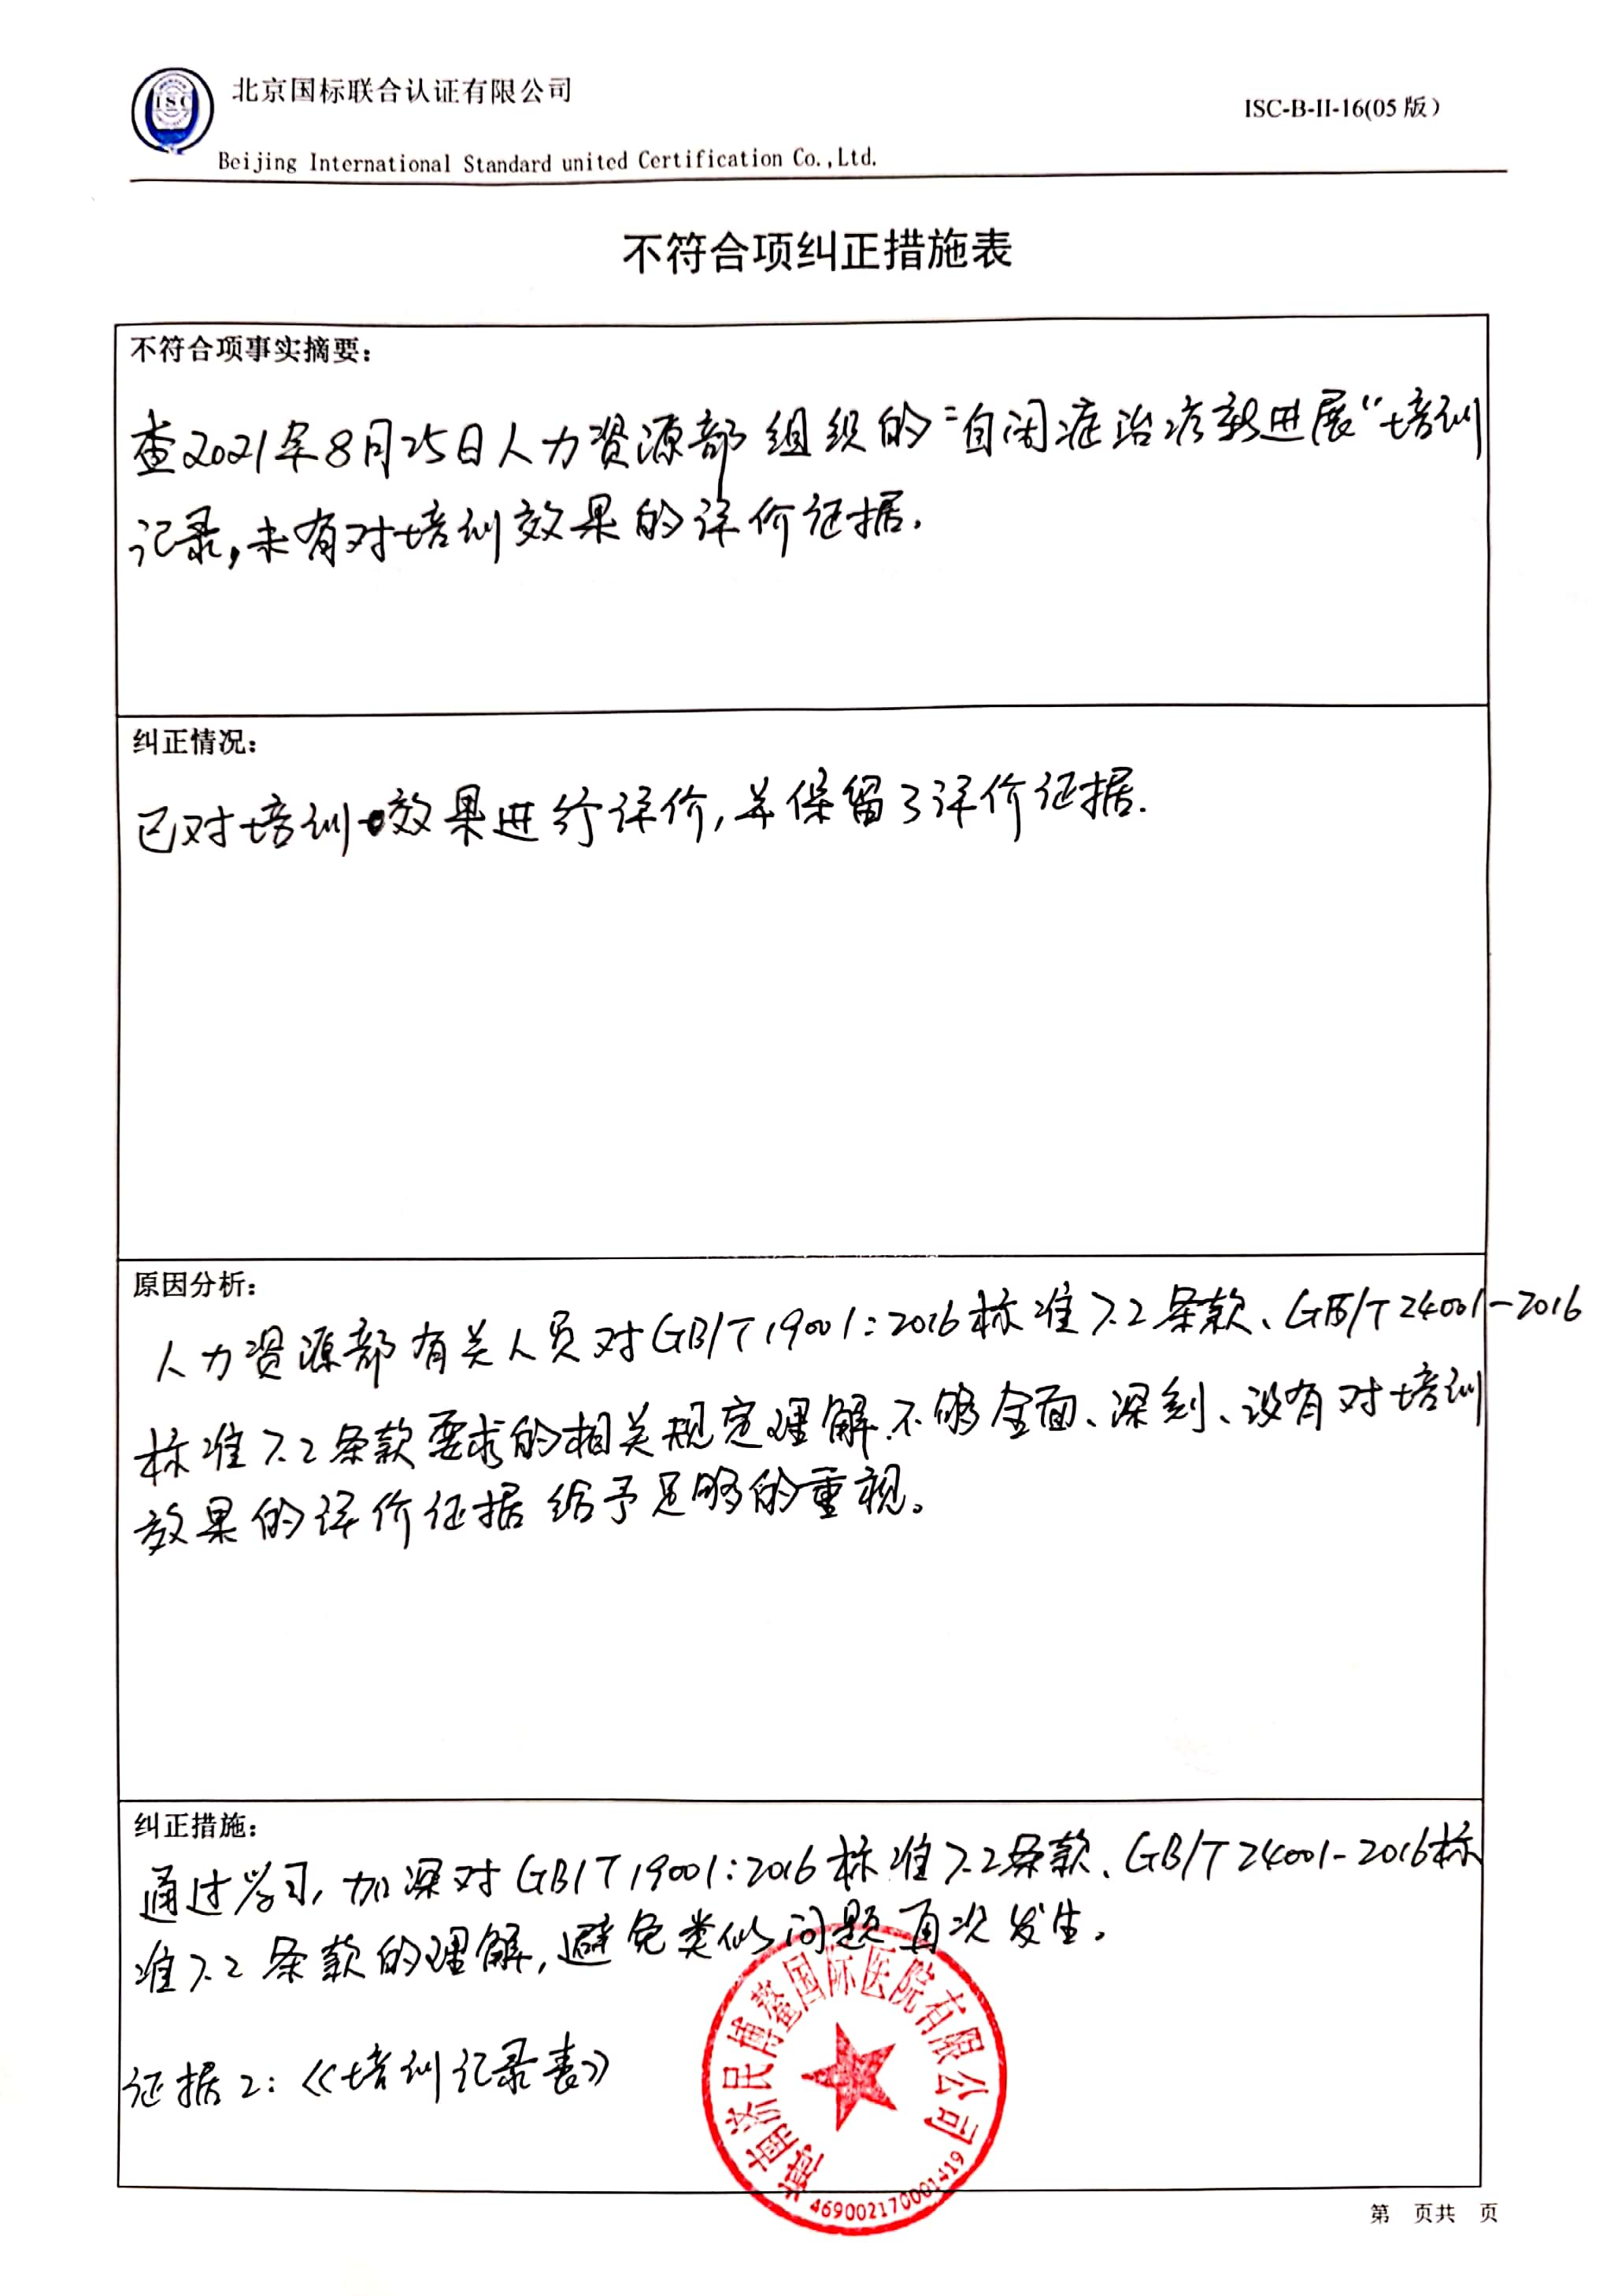 ISC
北京国标联合认证有限公司
ISC-B-II-16(05 版)
Beijing International Standard united Certification Co.,Ltd.
不符合项纠正措施表
不符合项事实摘要：
查2021年8月25日人力资源部组织的“自闭症治疗新进展”培训
记录，未有对培训效果的评价证据．
纠正情况：
已对培训效果进行评价，并保留了评价证据．
原因分析：
人力资源部有关人员对GB/T19001:2016标准7.2条款、GB/T24001-2016
标准7.2条款要求的相关规定理解不够全面、深刻、没有对培训
效果的评价证据给予足够的重视。
纠正措施：
通过学习，加深对GB/T19001:2016标准7.2条款、GB/T24001-2016标
准7.2条款的理解，避免类似问题再次发生。
证据2：《培训记录表》
海南济民博鳌国际医院有限公司
469002170001419
第 页共 页